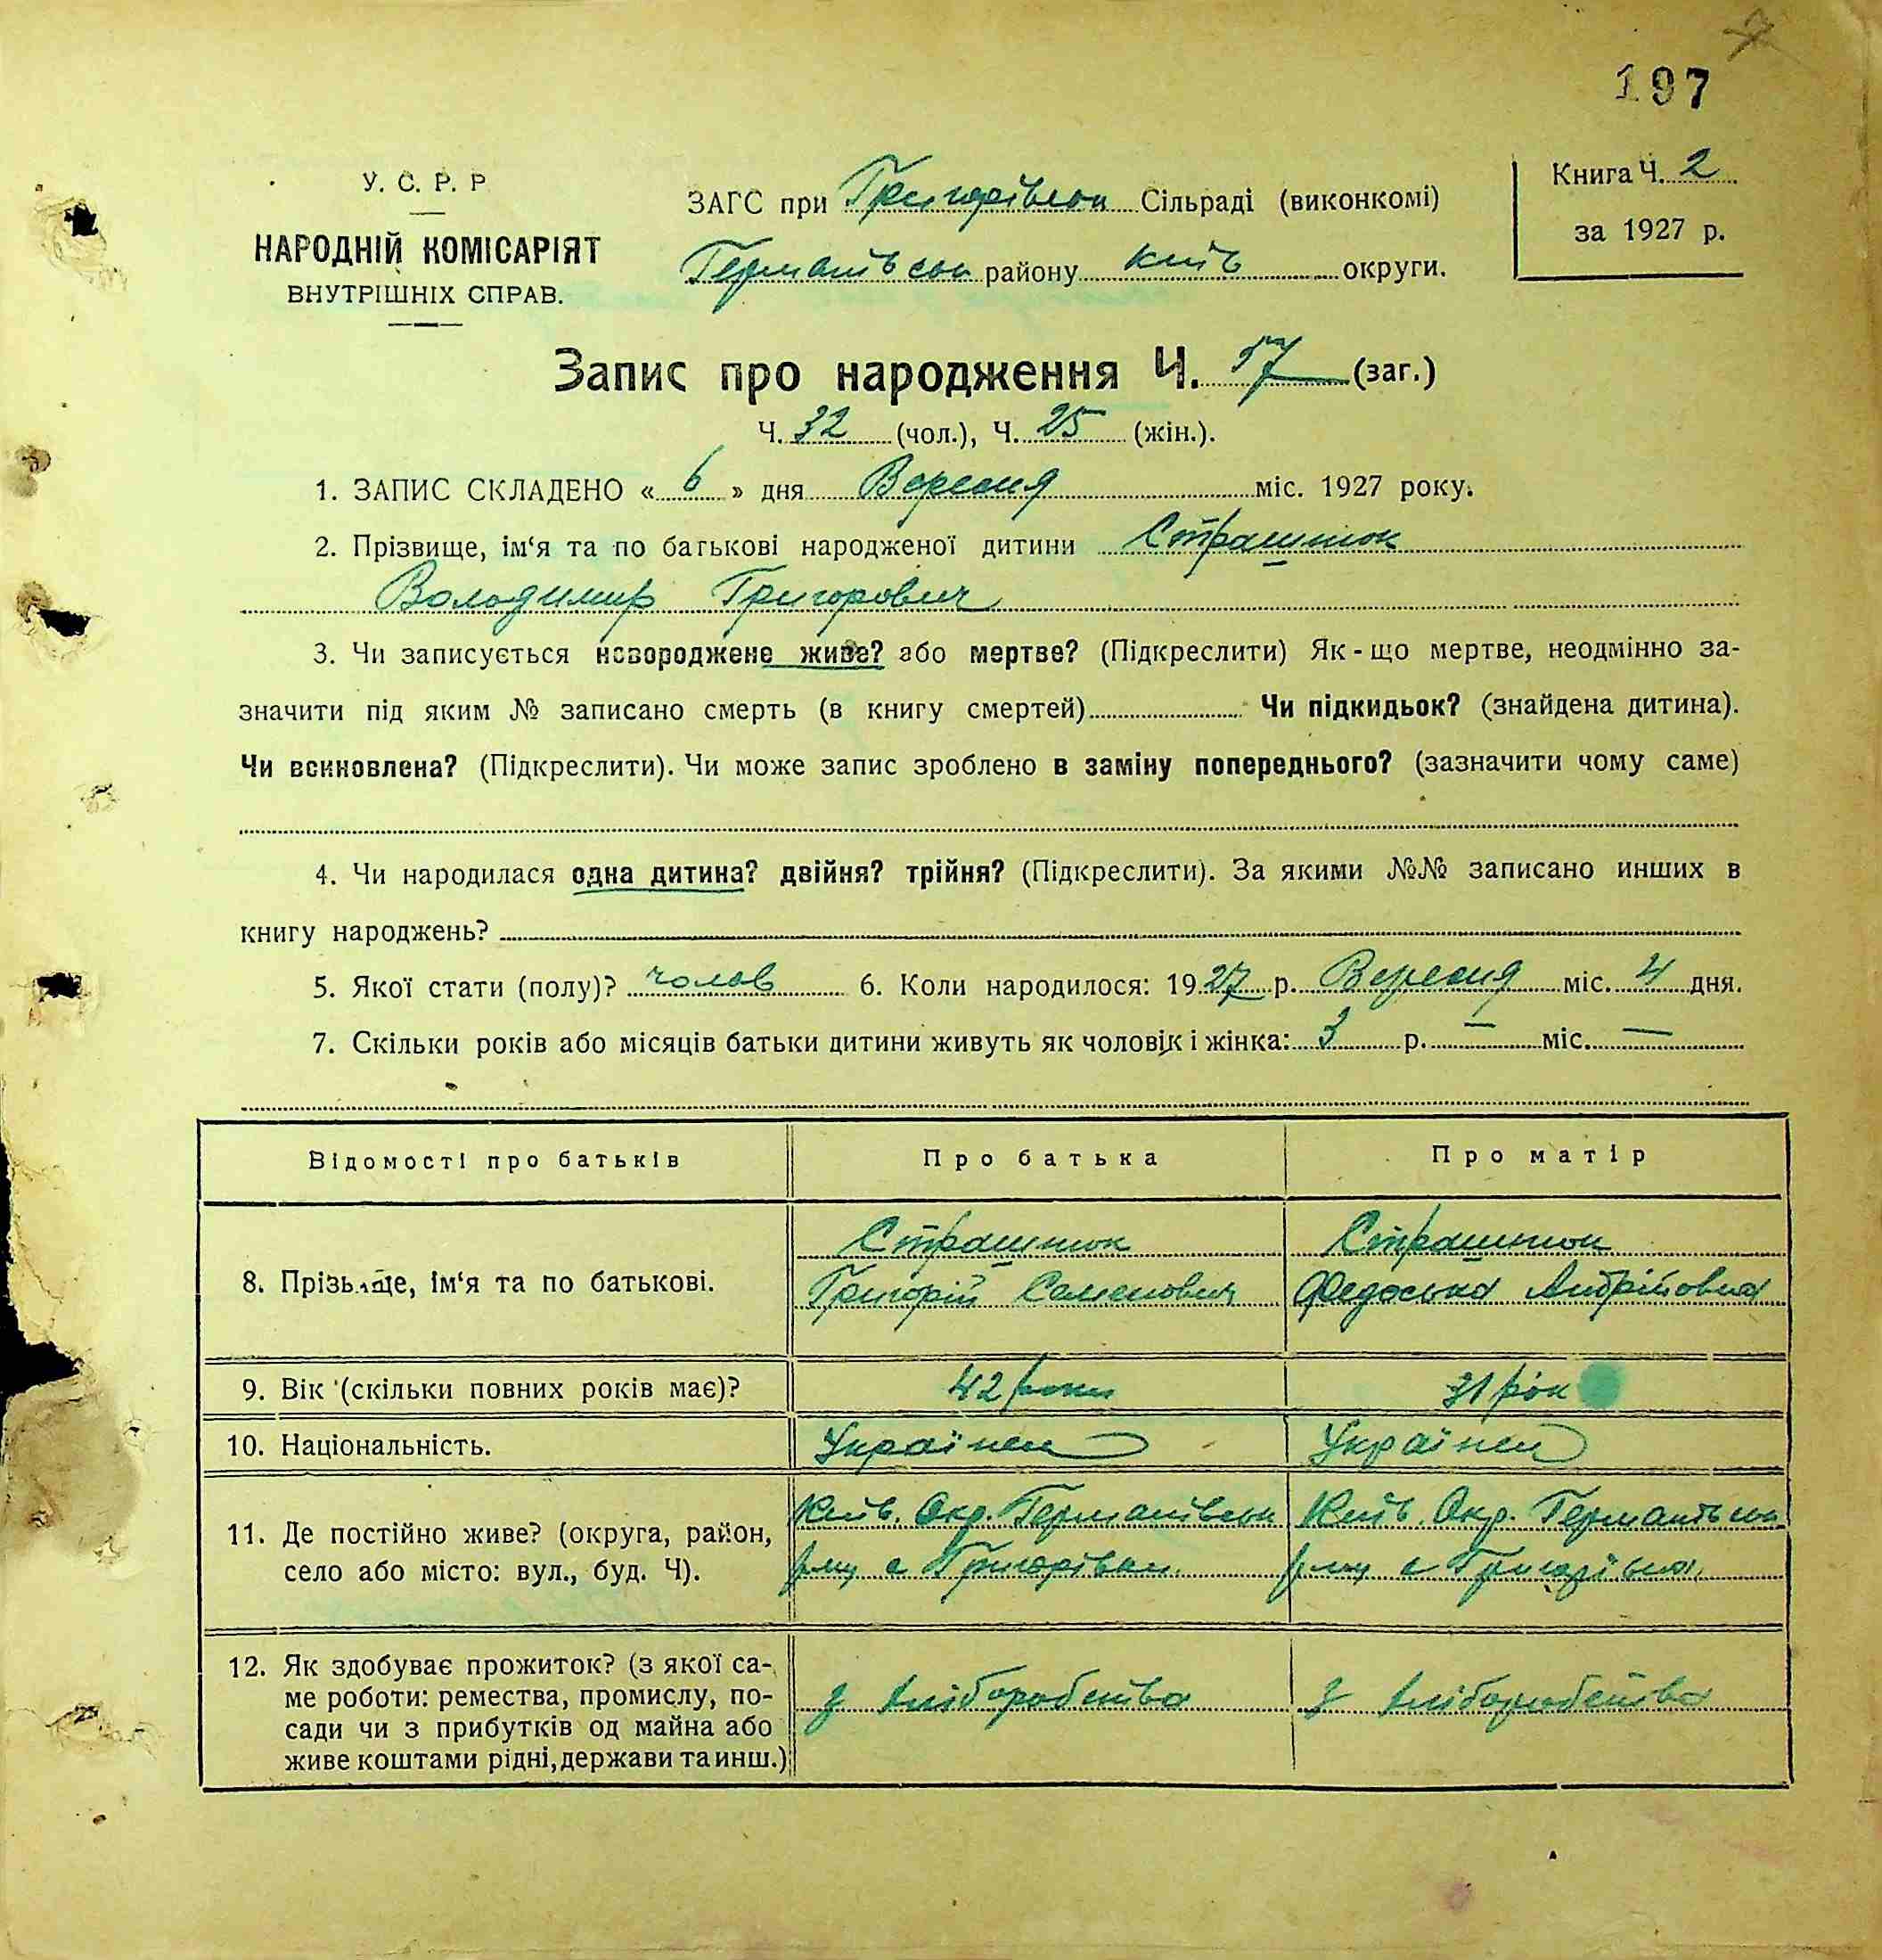 197
У. С. Р. Р
НАРОДНІЙ КОМІСАРІЯТ
ВНУТРІШНІХ СПРАВ.
ЗАГС при Григорівськ Сільраді (виконкомі)
Германівськ району Київ округи.
Книга Ч. 2
за 1927 р.
Запис про народження Ч. 57 (заг.)
Ч. 32 (чол.), Ч. 25 (жін.).
1. ЗАПИС СКЛАДЕНО « 6 » дня Вересня міс. 1927 року.
2. Прізвище, ім‘я та по батькові народженої дитини Страшнюк
Володимир Григорович
3. Чи записується новороджене живе? або мертве? (Підкреслити) Як-що мертве, неодмінно за-
значити під яким № записано смерть (в книгу смертей) Чи підкидьок? (знайдена дитина).
Чи всиновлена? (Підкреслити). Чи може запис зроблено в заміну попереднього? (зазначити чому саме)
4. Чи народилася одна дитина? двійня? трійня? (Підкреслити). За якими №№ записано инших в
книгу народжень?
5. Якої стати (полу)? чолов 6. Коли народилося: 1927 р. Вересня міс. 4 дня.
7. Скільки років або місяців батьки дитини живуть як чоловік і жінка: 3 р. — міс. —
Відомості про батьків Про батька Про матір
8. Прізвище, ім‘я та по батькові.
Страшнюк
Григорій Семенович
Страшнюк
Федоська Андрійовна
9. Вік (скільки повних років має)? 42 роки 31 рік
10. Національність. Українец Українец
11. Де постійно живе? (округа, район,
село або місто: вул., буд. Ч).
Київ. Окр. Германівськ
р-ну с Григорівка.
Київ. Окр. Германівськ
р-ну с Григорівка.
12. Як здобуває прожиток? (з якої са-
ме роботи: ремества, промислу, по-
сади чи з прибутків од майна або
живе коштами рідні, держави та инш.)
з хліборобства
з хліборобства